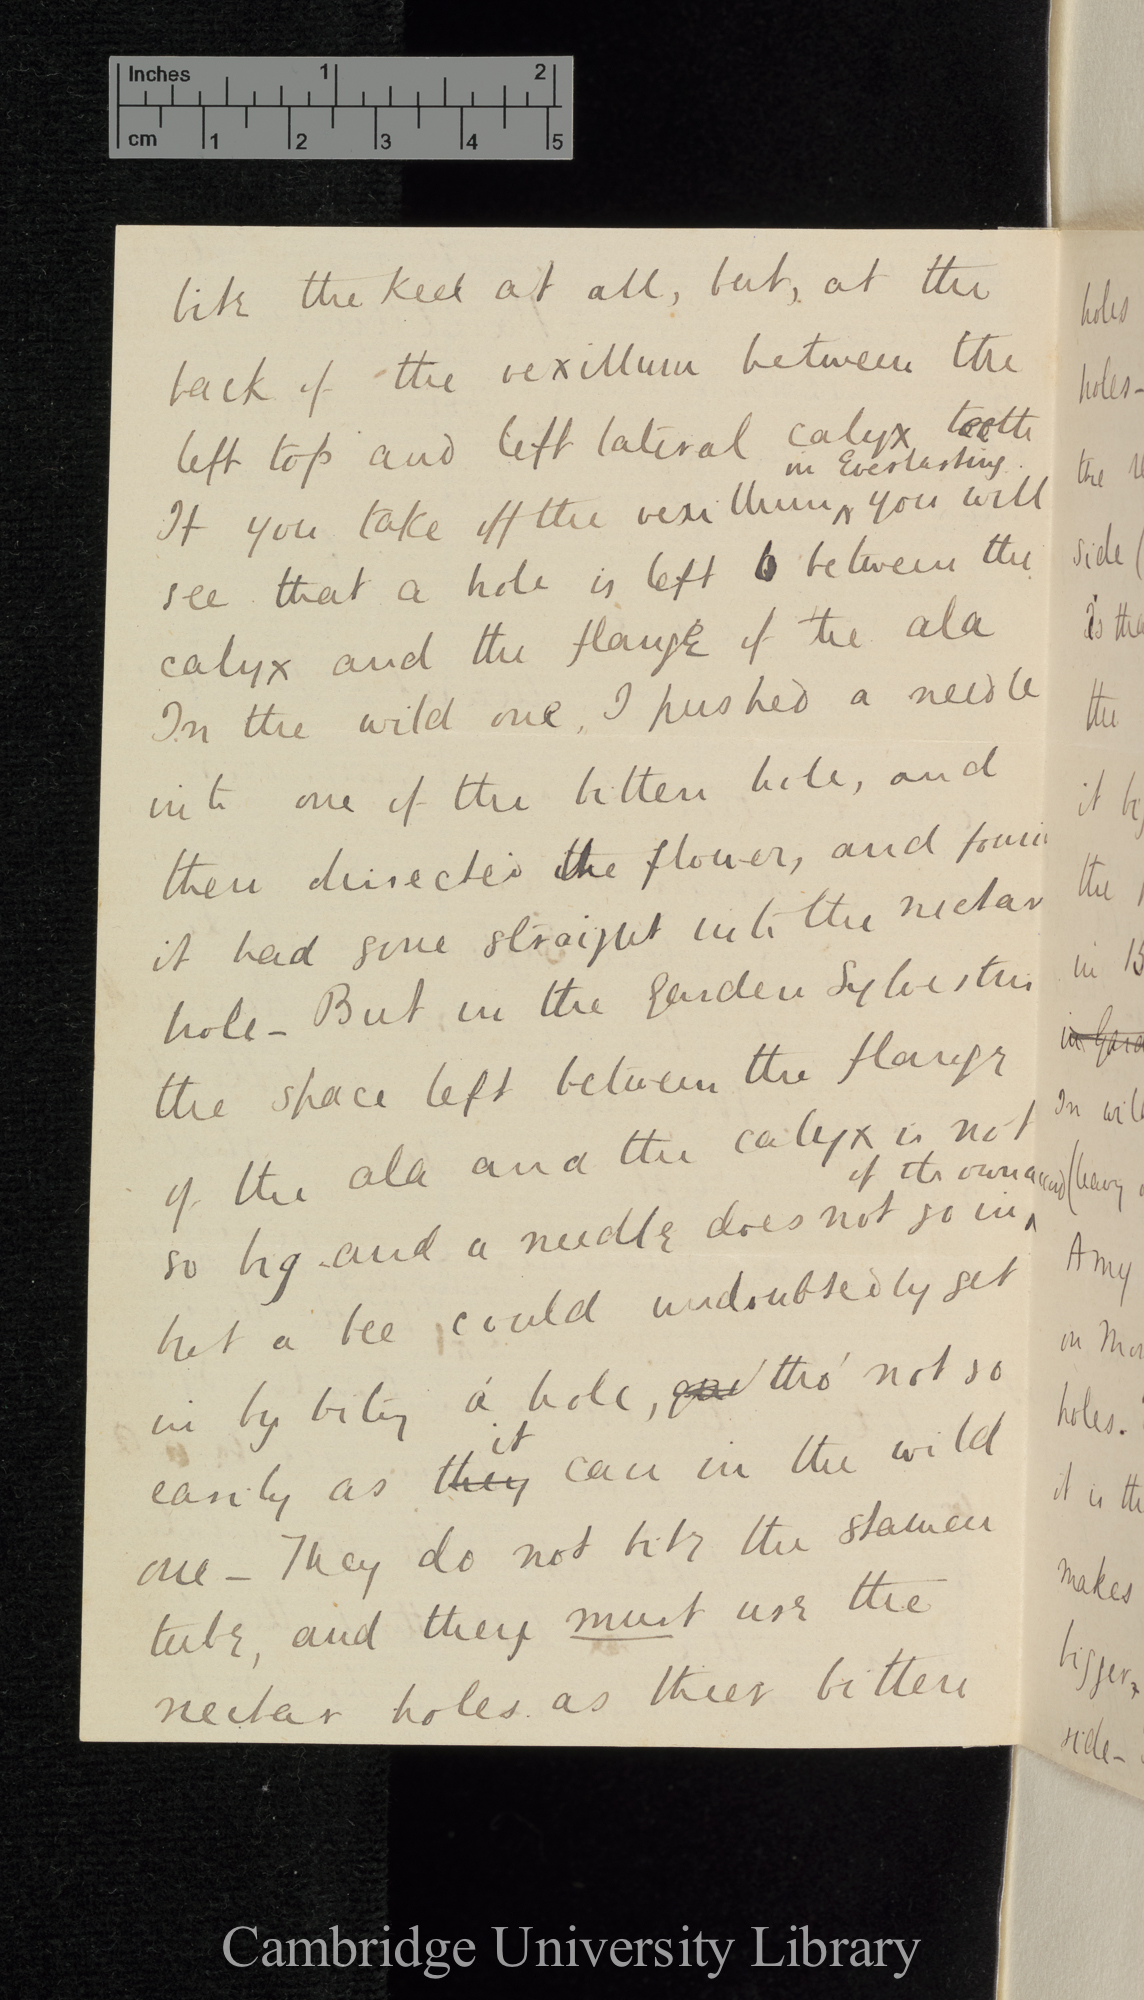 Inches 1 2
cm 1 2 3 4 5
bite the keel at all, but, at the
back of the vexillum between the
left top and left lateral calyx teeth
in Everlasting.
If you take off the vexillum ^ you will
see that a hole is left b between the
calyx and the flange of the ala
In the wild one, I pushed a needle
into one of the bitten hole, and
then disected the flower, and found
it had gone straight into the nectar
hole - But in the garden Sylvestris
the space left between the flange
of the ala and the calyx is not
of its own accord
so big and a needle does not go in ^
but a bee could undoubtedly get
in by biting a hole, and tho' not so
it
easily as they can in the wild
one - They do not bite the stamen
tube, and they must use the
nectar holes as their bitten
holes
holes-
the
side (
is the
the
it
the
in 15
in
In
(heavy
Amy
on
holes.
it is the
makes
bigger,
side-
Cambridge University Library